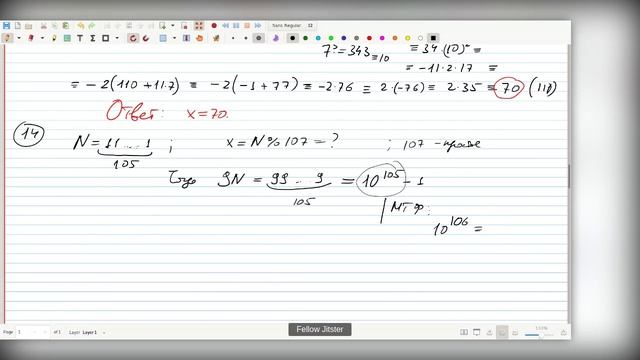 Sans Regular 12
7³ = 343 ≡ 10 ≡ 34·(10)² ≡
≡ -11·2·17 ≡
≡ -2(110 + 11·7) ≡ -2(-1 + 77) ≡ -2·76 ≡ 2·(-76) ≡ 2·35 ≡ 70 (111)
Ответ: x = 70.
14 N = 11...1 ; x = N % 107 = ? ; 107 -
105
9N = 99...9 = 10^105 - 1
105
МТФ:
10^106 ≡
Page 1 of 1 Layer Layer 1
Fellow Jitster